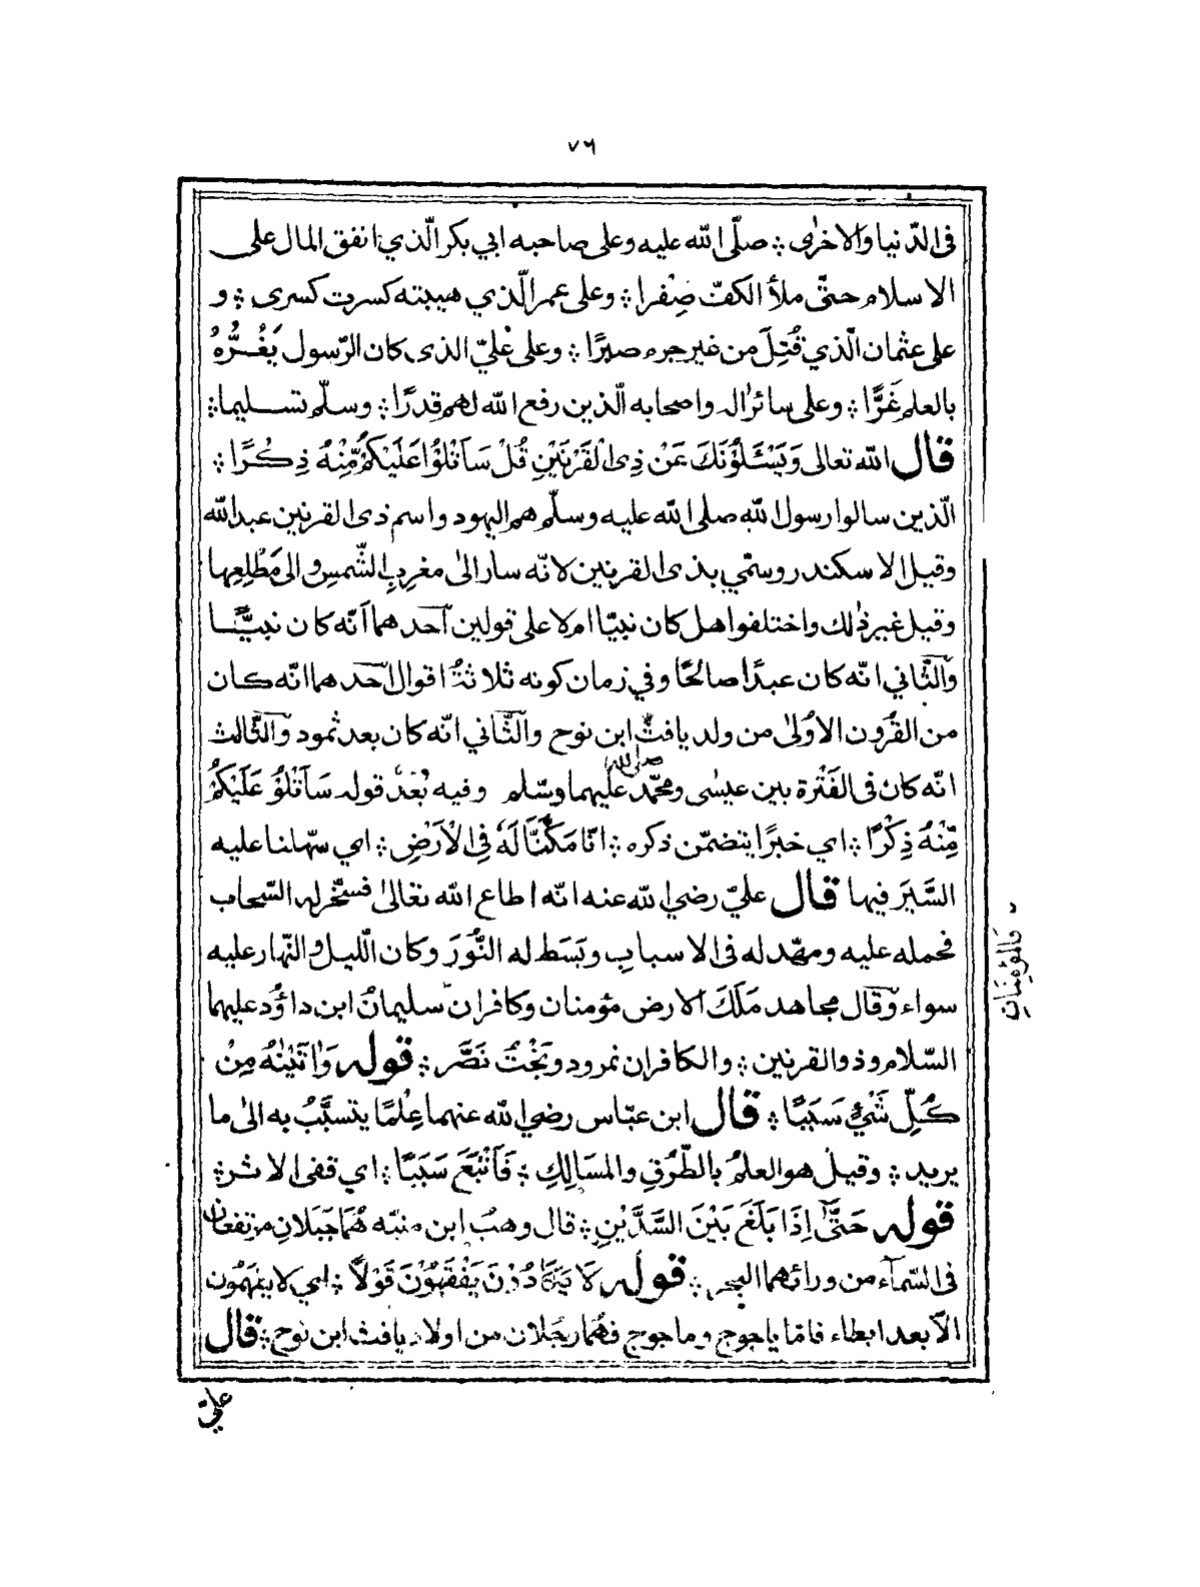 ٧٦
فى الدّنيا والاخرٰى ؞ صلّى الله عليه وعلى صاحبه ابي بكر الّذي انفق المال على
الاسلام حتّى ملأ الكفّ صِفْرا ؞ وعلى عمر الّذي هيبته كسرت كسرى ؞ و
على عثمان الّذي قُتِلَ من غير جرم صبرًا ؞ وعلى عَليّ الذى كان الرّسول يَغُـرُّهُ
بالعلم غَرًّا ؞ وعلى سائراٰله واصحابه الّذين رفع الله لهم قدرًا ؞ وسلّم تسـليما ؞
قال الله تعالى وَيَسْـَٔلُوْنَكَ عَنْ ذِى الْقَرْنَيْنِ قُلْ سَاَتْلُوْا عَلَيْكُمْ مِّنْهُ ذِكْرًا ؞
الّذين سالوا رسول الله صلى الله عليه وسلّم هم اليهود واسم ذى القرنين عبدالله
وقيل الاسكندر وسمّي بذى القرنين لانّه سار الىٰ مغرِبِ الشّمس والى مَطْلِعِها
وقيل غير ذٰلك واختلفوا هل كان نبيّا ام لا على قولين آحدهما اَنّه كان نبيًّـا
وَالثّاني انّه كان عبدًا صالحًا وفي زمان كونه ثلاثةُ اقوال احدهما انّه كان
من القُرُون الاُولىٰ من ولد يافث ابن نوح والثّاني انّه كان بعد ثمود وَالثّالث
انّه كان فى الفَتْرة بين عيسٰى ومحمّد صلى الله عليهما وسّلم وفيه بُعْدٌ قوله سَاَتْلُوْ عَلَيْكُمْ
مِّنْهُ ذِكْرًا ؞ اي خبرًا يتضمّن ذكره ؞ انّا مَكَّنَّا لَهٗ فِى الْاَرْضِ ؞ اى سهّلنا عليه
السَّيَرَ فيها قال عليّ رضي الله عنه انّه اطاع الله تعالىٰ فسخّر له السّحاب
فحمله عليه ومهّد له فى الاسباب وبَسَط له النُّوْرَ وكان الّليل والنّهار عليه
سواء وّقال مجاهد مَلَكَ الارض مؤمنان وكافران سليمانُ ابن داوٗد عليهما
فالمؤمِنَانِ
السّلام وذوالقرنين ؞ والكافران نمرود وبَخْتُ نَصَّر ؞ قوله وَاٰتَيْنٰهُ مِنْ
كُـلِّ شَىْءٍ سَبَبًا ؞ قال ابن عبّاس رضي الله عنهما عِلْمًا يتسبّبُ به الىٰ ما
يريد ؞ وقيل هو العلمُ بالطُّرُقِ والمسَالِكِ ؞ فَاَتْبَعَ سَبَبًا ؞ اي قفى الاثـر ؞
قوله حَتّٰٓى اِذَا بَلَغَ بَيْنَ السَّدَّيْنِ ؞ قال وهبُ ابن منبّه هُمَا جَبَلانِ مرتفعان
فى السّماٰء من ورائهما البحر ؞ قوله لَا يَكَادُوْنَ يَفْقَهُوْنَ قَوْلًا ؞ اى لا يفهَمُون
الّا بعد ابطاء فامّا ياجوج وماجوج فهُمَا رجُلان من اولاد يافث ابن نوح ؞ قال
عليّ